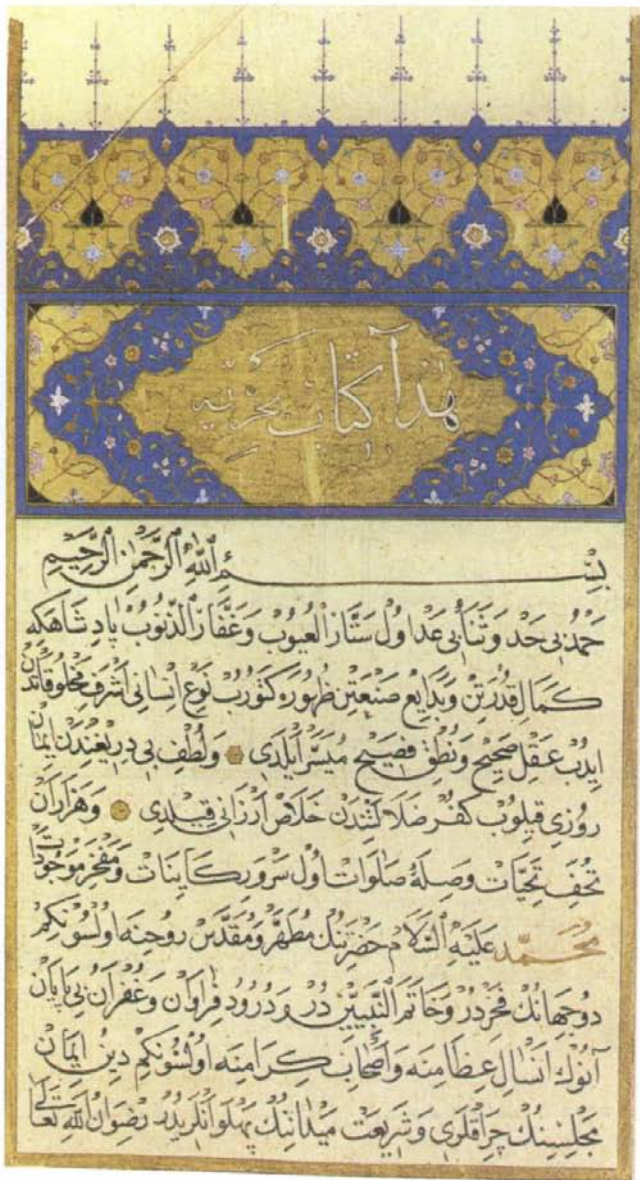 هذا كتاب بحريه
بسم الله الرحمن الرحيم
حمد بى حد و ثنأ بى عد اول ستار العيوب و غفار الذنوب پادشاهكه
كمال قدرتن و بدايع صنعتن ظهوره كتورب نوع انسانى اشرف مخلوقاتدن
ايدب عقل صحيح و نطق فصيح ميسر ايلدى و لطف بى دريغندن ايمان
روزى قيلوب كفر ضلالتندن خلاص ارزانى قيلدى و هزاران
تحف تحيات و صلهٔ صلوات اول سرور كاينات و مفخر موجودات
محمد عليه السلام حضرتنك مطهر و مقدس روحنه اولسونكم
دو جهانك فخردر و خاتم النبيين در و درود فراوان و غفران بى پايان
آنوك انسال عظامنه و اصحاب كرامنه اولسونكم دين ايمان
مجلسنك چراقلرى و شريعت ميداننك پهلوانلريدر رضوان الله تعالى